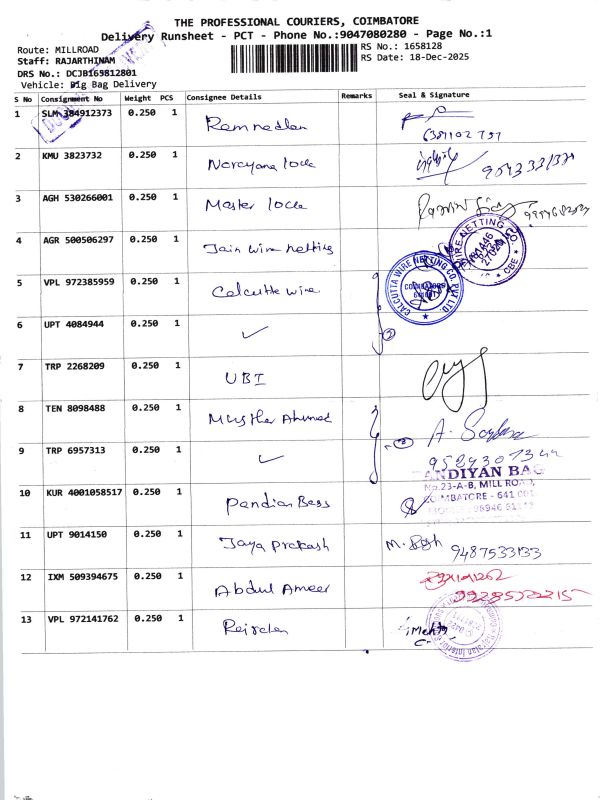 THE PROFESSIONAL COURIERS, COIMBATORE
Delivery Runsheet - PCT - Phone No.:9047080280 - Page No.:1
Route: MILLROAD
RS No.: 1658128
Staff: RAJARTHINAM
RS Date: 18-Dec-2025
DRS No.: DCJB165812801
Vehicle: Big Bag Delivery
S No Consignment No Weight PCS Consignee Details Remarks Seal & Signature
1 SLM 384912373 0.250 1
2 KMU 3823732 0.250 1 Narayana lock
3 AGH 530266001 0.250 1 Master lock
4 AGR 500506297 0.250 1 Jain wire netting
WIRE NETTING CO.
CBE
5 VPL 972385959 0.250 1 Calcutta wire
CALCUTTA WIRE NETTING CO. PVT LTD.
6 UPT 4084944 0.250 1 ✓ 2
7 TRP 2268209 0.250 1 UBI
8 TEN 8098488 0.250 1 Ahmed A.
9 TRP 6957313 0.250 1 ✓
ANDIYAN BAG
No.23-A-B, MILL ROAD,
COIMBATORE - 641 001
10 KUR 4001058517 0.250 1 Pandian Bags
11 UPT 9014150 0.250 1 Jaya prakash M. 9487533133
12 IXM 509394675 0.250 1 Abdul Ameer
13 VPL 972141762 0.250 1 Mehta